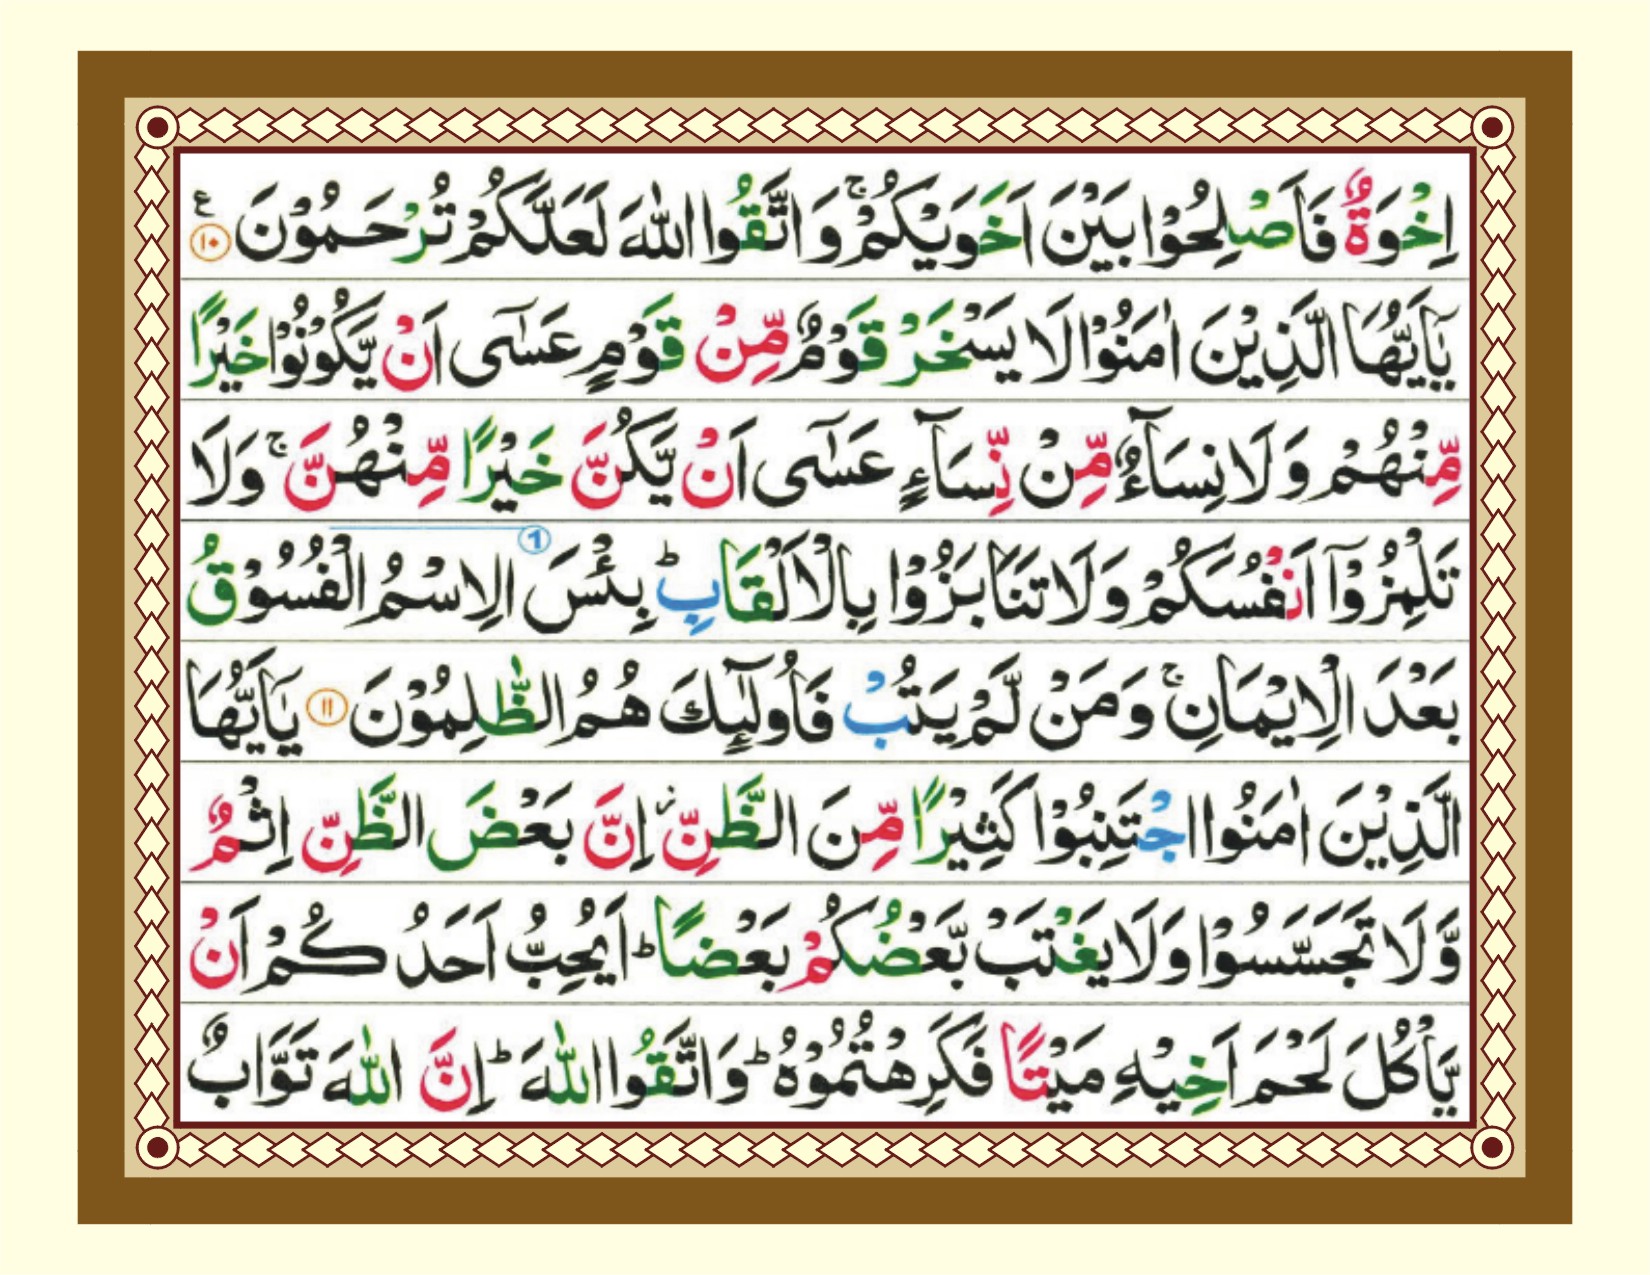 اِخْوَةٌ فَاَصْلِحُوْا بَيْنَ اَخَوَيْكُمْ ۚ وَ اتَّقُوا اللّٰهَ لَعَلَّكُمْ تُرْحَمُوْنَ ع ۝۱۰
يٰۤاَيُّهَا الَّذِيْنَ اٰمَنُوْا لَا يَسْخَرْ قَوْمٌ مِّنْ قَوْمٍ عَسٰۤى اَنْ يَّكُوْنُوْا خَيْرًا
مِّنْهُمْ وَ لَا نِسَآءٌ مِّنْ نِّسَآءٍ عَسٰۤى اَنْ يَّكُنَّ خَيْرًا مِّنْهُنَّ ۚ وَ لَا
تَلْمِزُوْۤا اَنْفُسَكُمْ وَ لَا تَنَابَزُوْا بِالْاَلْقَابِ ؕ بِئْسَ الِاسْمُ الْفُسُوْقُ
بَعْدَ الْاِيْمَانِ ۚ وَ مَنْ لَّمْ يَتُبْ فَاُولٰٓئِكَ هُمُ الظّٰلِمُوْنَ ۝۱۱ يٰۤاَيُّهَا
الَّذِيْنَ اٰمَنُوا اجْتَنِبُوْا كَثِيْرًا مِّنَ الظَّنِّ ؗ اِنَّ بَعْضَ الظَّنِّ اِثْمٌ
وَّ لَا تَجَسَّسُوْا وَ لَا يَغْتَبْ بَّعْضُكُمْ بَعْضًا ؕ اَيُحِبُّ اَحَدُكُمْ اَنْ
يَّاْكُلَ لَحْمَ اَخِيْهِ مَيْتًا فَكَرِهْتُمُوْهُ ؕ وَ اتَّقُوا اللّٰهَ ؕ اِنَّ اللّٰهَ تَوَّابٌ